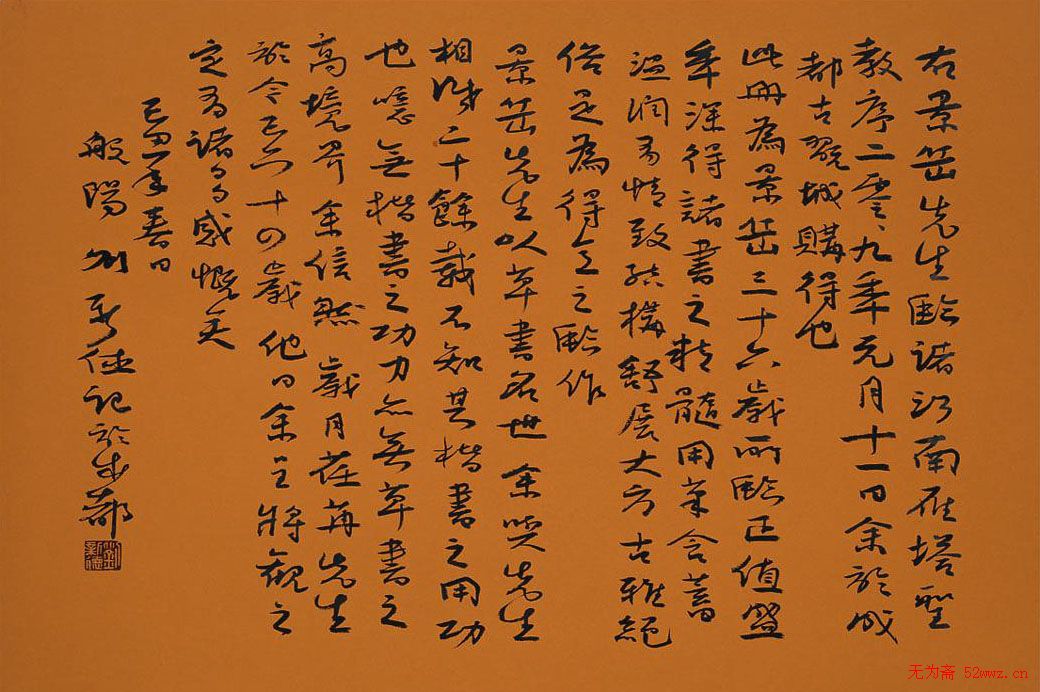 右景岳先生臨褚河南雁塔聖
教序二零零九年元月十一日余於成
都古玩城購得也
此冊為景岳三十六歲所臨正值盛
年深得諸書之精髓用筆含蓄
温润多情致结構舒展大方古雅絕
俗足為得意之臨作
景岳先生以草書名世余與先生
相識二十餘載不知其楷書之用功
也噫無楷書之功力亦無草書之
高境界余信然歲月荏苒先生
於今已六十四歲他日余呈將觀之
定有諸多感慨矣
己丑年春日
般陽劉新德記於成都
无为斋 52wwz.cn